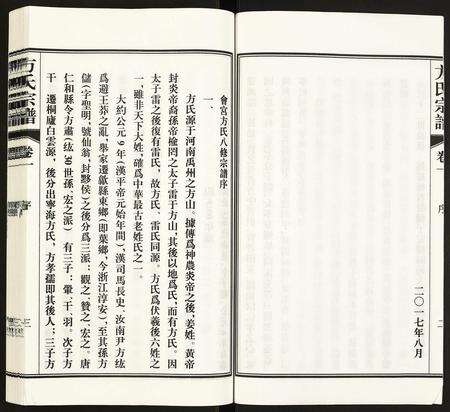 方氏宗譜
卷一
序
二〇一七年八月
會宮方氏八修宗譜序
一、
方氏源于河南禹州之方山。據傳爲神農炎帝之後，姜姓。黃帝
封炎帝裔孫帝榆罔之太子雷于方山，其後以地爲氏，而有方氏。因
太子雷之後復有雷氏，故方氏、雷氏同源。方氏爲伏羲後六姓之
一，雖非天下大姓，確爲中華最古老姓氏之一。
大約公元9年（漢平帝元始年間），漢司馬長史、汝南尹方紘
爲避王莽之亂，舉家遷歙縣東鄉（即葉鄉，今浙江淳安），至其孫方
儲（字聖明，號仙翁，封黟侯）之後分爲三派：觀之、贊之、宏之。唐
仁和縣令方肅（紘30世孫，宏之派）有三子：暈、干、羽。次子方
干，遷桐廬白雲源，後分出寧海方氏，方孝孺即其後人；三子方
方氏宗譜
卷一
序